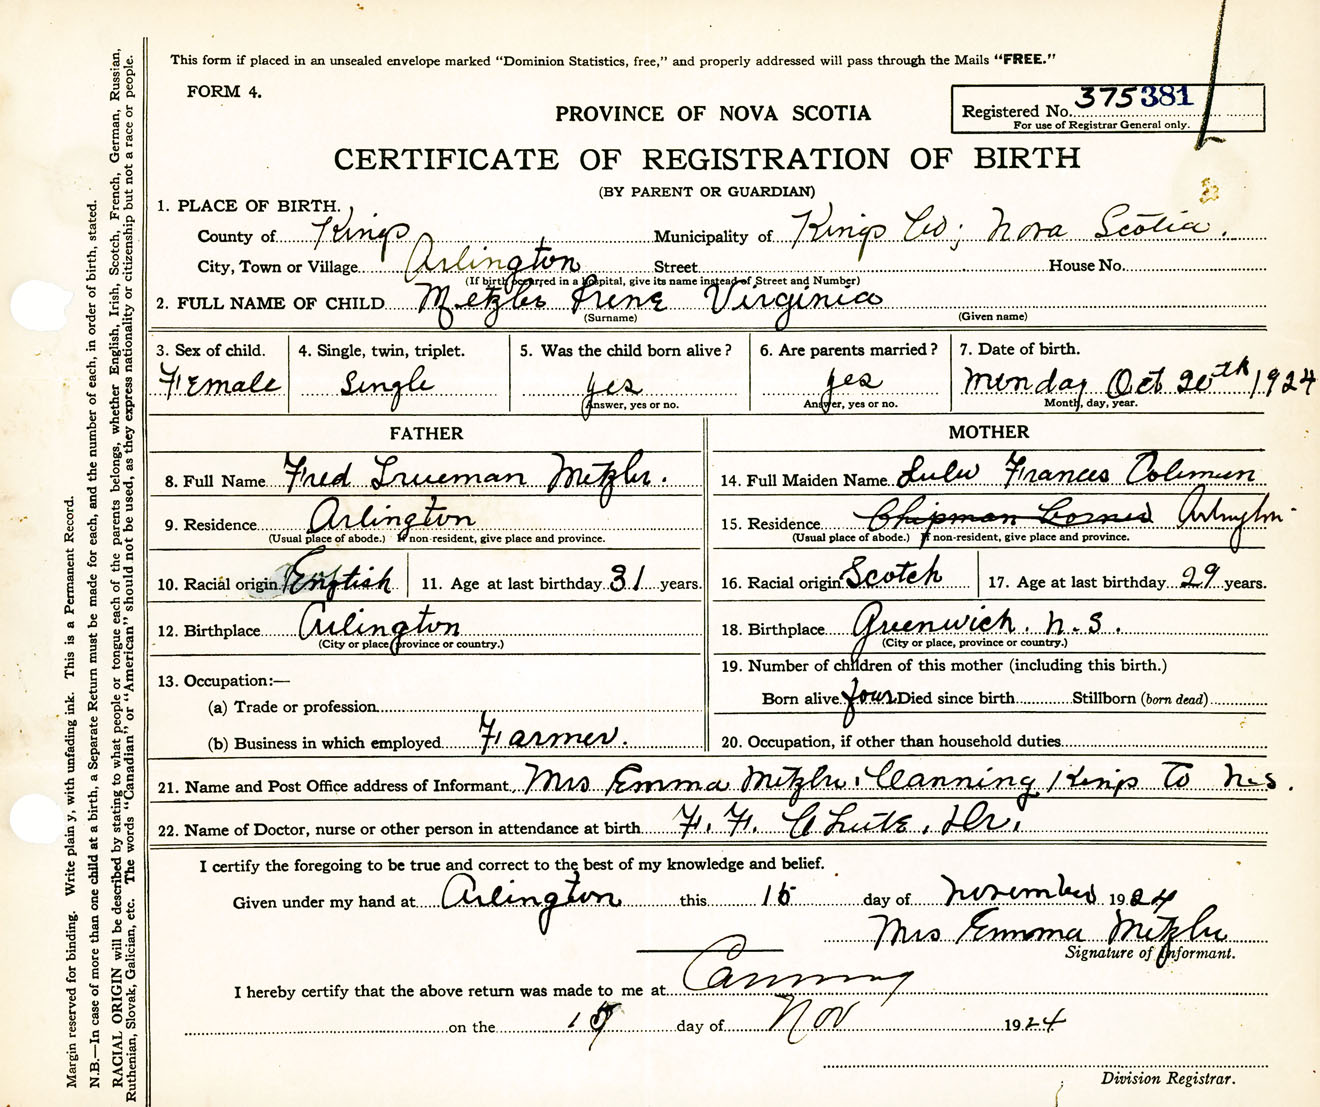 This form if placed in an unsealed envelope marked "Dominion Statistics, free," and properly addressed will pass through the Mails "FREE."
FORM 4.
PROVINCE OF NOVA SCOTIA
Registered No. 375381
For use of Registrar General only.
CERTIFICATE OF REGISTRATION OF BIRTH
(BY PARENT OR GUARDIAN)
1. PLACE OF BIRTH.
County of Kings Municipality of Kings Co; Nova Scotia.
City, Town or Village Arlington Street House No.
(If birth occurred in a hospital, give its name instead of Street and Number)
2. FULL NAME OF CHILD Metzler Irene Virginia
(Surname) (Given name)
3. Sex of child. 4. Single, twin, triplet. 5. Was the child born alive? 6. Are parents married? 7. Date of birth.
Female Single yes yes Munday Oct 20th 1924
Answer, yes or no. Answer, yes or no. Month, day, year.
FATHER MOTHER
8. Full Name Fred Trueman Metzler. 14. Full Maiden Name Lulu Frances Coleman
9. Residence Arlington 15. Residence Chipman Corner Arlington
(Usual place of abode.) If non-resident, give place and province. (Usual place of abode.) If non-resident, give place and province.
10. Racial origin English 11. Age at last birthday 31 years. 16. Racial origin Scotch 17. Age at last birthday 29 years.
12. Birthplace Arlington 18. Birthplace Greenwich. N.S.
(City or place, province or country.) (City or place, province or country.)
13. Occupation:— 19. Number of children of this mother (including this birth.)
(a) Trade or profession Born alive four Died since birth Stillborn (born dead)
(b) Business in which employed Farmer. 20. Occupation, if other than household duties
21. Name and Post Office address of Informant. Mrs Emma Metzler. Canning Kings Co N.S.
22. Name of Doctor, nurse or other person in attendance at birth F. F. Chute, Dr.
I certify the foregoing to be true and correct to the best of my knowledge and belief.
Given under my hand at Arlington this 15 day of November 1924
Mrs Emma Metzler
Signature of Informant.
I hereby certify that the above return was made to me at Canning
on the 15 day of Nov 1924
Division Registrar.
Margin reserved for binding. Write plainly, with unfading ink. This is a Permanent Record.
N.B.—In case of more than one child at a birth, a Separate Return must be made for each, and the number of each, in order of birth, stated.
RACIAL ORIGIN will be described by stating to what people or tongue each of the parents belongs, whether English, Irish, Scotch, French, German, Russian,
Ruthenian, Slovak, Galician, etc. The words "Canadian" or "American" should not be used, as they express nationality or citizenship but not a race or people.